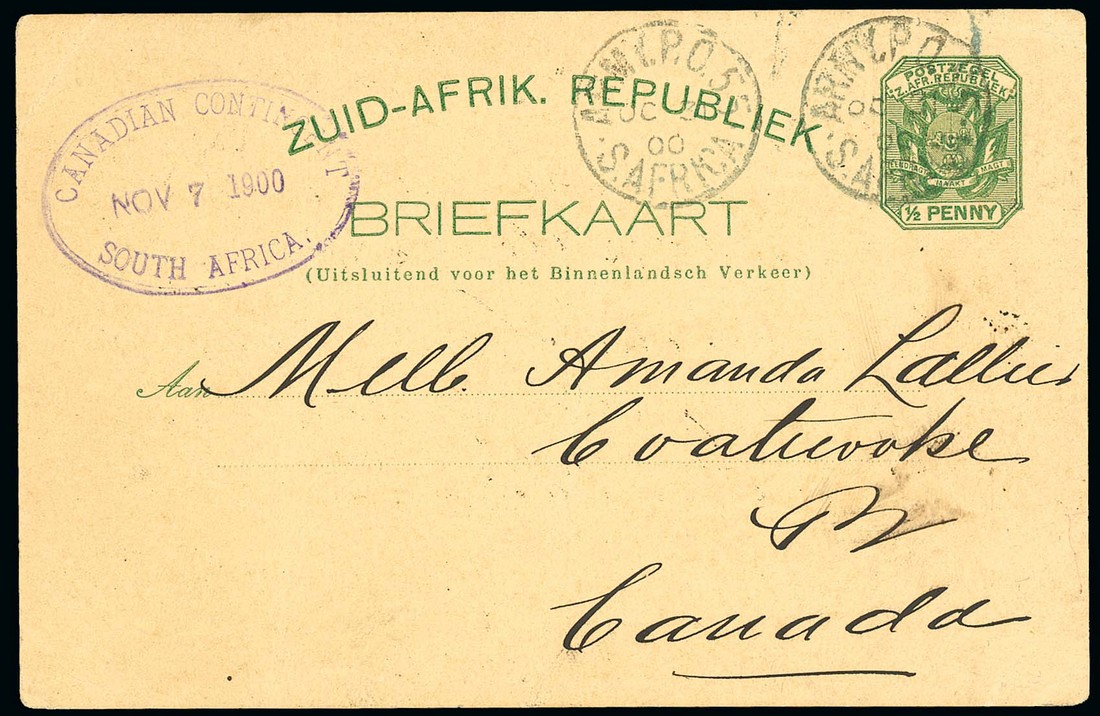 ZUID-AFRIK. REPUBLIEK
BRIEFKAART
(Uitsluitend voor het Binnenlandsch Verkeer)
CANADIAN CONTINGENT
NOV 7 1900
SOUTH AFRICA.
ARMY.P.O.5
OC
00
S.AFRICA
ARMY.P.O.
OC
S.A
POSTZEGEL
Z. AFR. REPUBLIEK
EENDRAGT MAAKT MAGT
½ PENNY
Aan Melle Amanda Lallier
Coaticooke
PQ
Canada